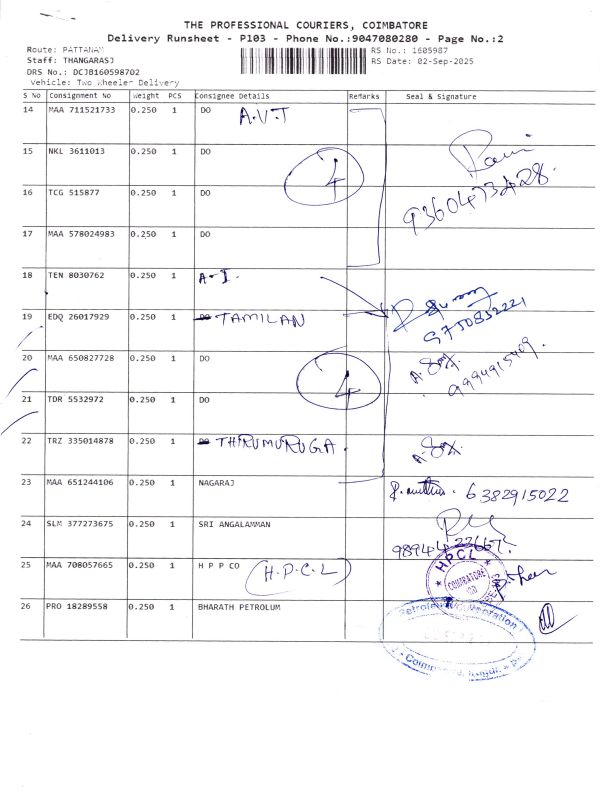 THE PROFESSIONAL COURIERS, COIMBATORE
Delivery Runsheet - P103 - Phone No.:9047080280 - Page No.:2
Route: PATTANAM
RS No.: 1605987
Staff: THANGARASJ
RS Date: 02-Sep-2025
DRS No.: DCJB160598702
Vehicle: Two Wheeler Delivery
S No Consignment No Weight PCS Consignee Details Remarks Seal & Signature
14 MAA 711521733 0.250 1 DO A.V.T
15 NKL 3611013 0.250 1 DO
4
16 TCG 515877 0.250 1 DO
17 MAA 578024983 0.250 1 DO
18 TEN 8030762 0.250 1 A-I.
19 EDQ 26017929 0.250 1 DO TAMILAN
20 MAA 650827728 0.250 1 DO
4
21 TDR 5532972 0.250 1 DO
22 TRZ 335014878 0.250 1 DO THIRUMURUGA
23 MAA 651244106 0.250 1 NAGARAJ 6382915022
24 SLM 377273675 0.250 1 SRI ANGALAMMAN
25 MAA 708057665 0.250 1 H P P CO H.P.C.L
HPCL
COIMBATORE
26 PRO 18289558 0.250 1 BHARATH PETROLUM